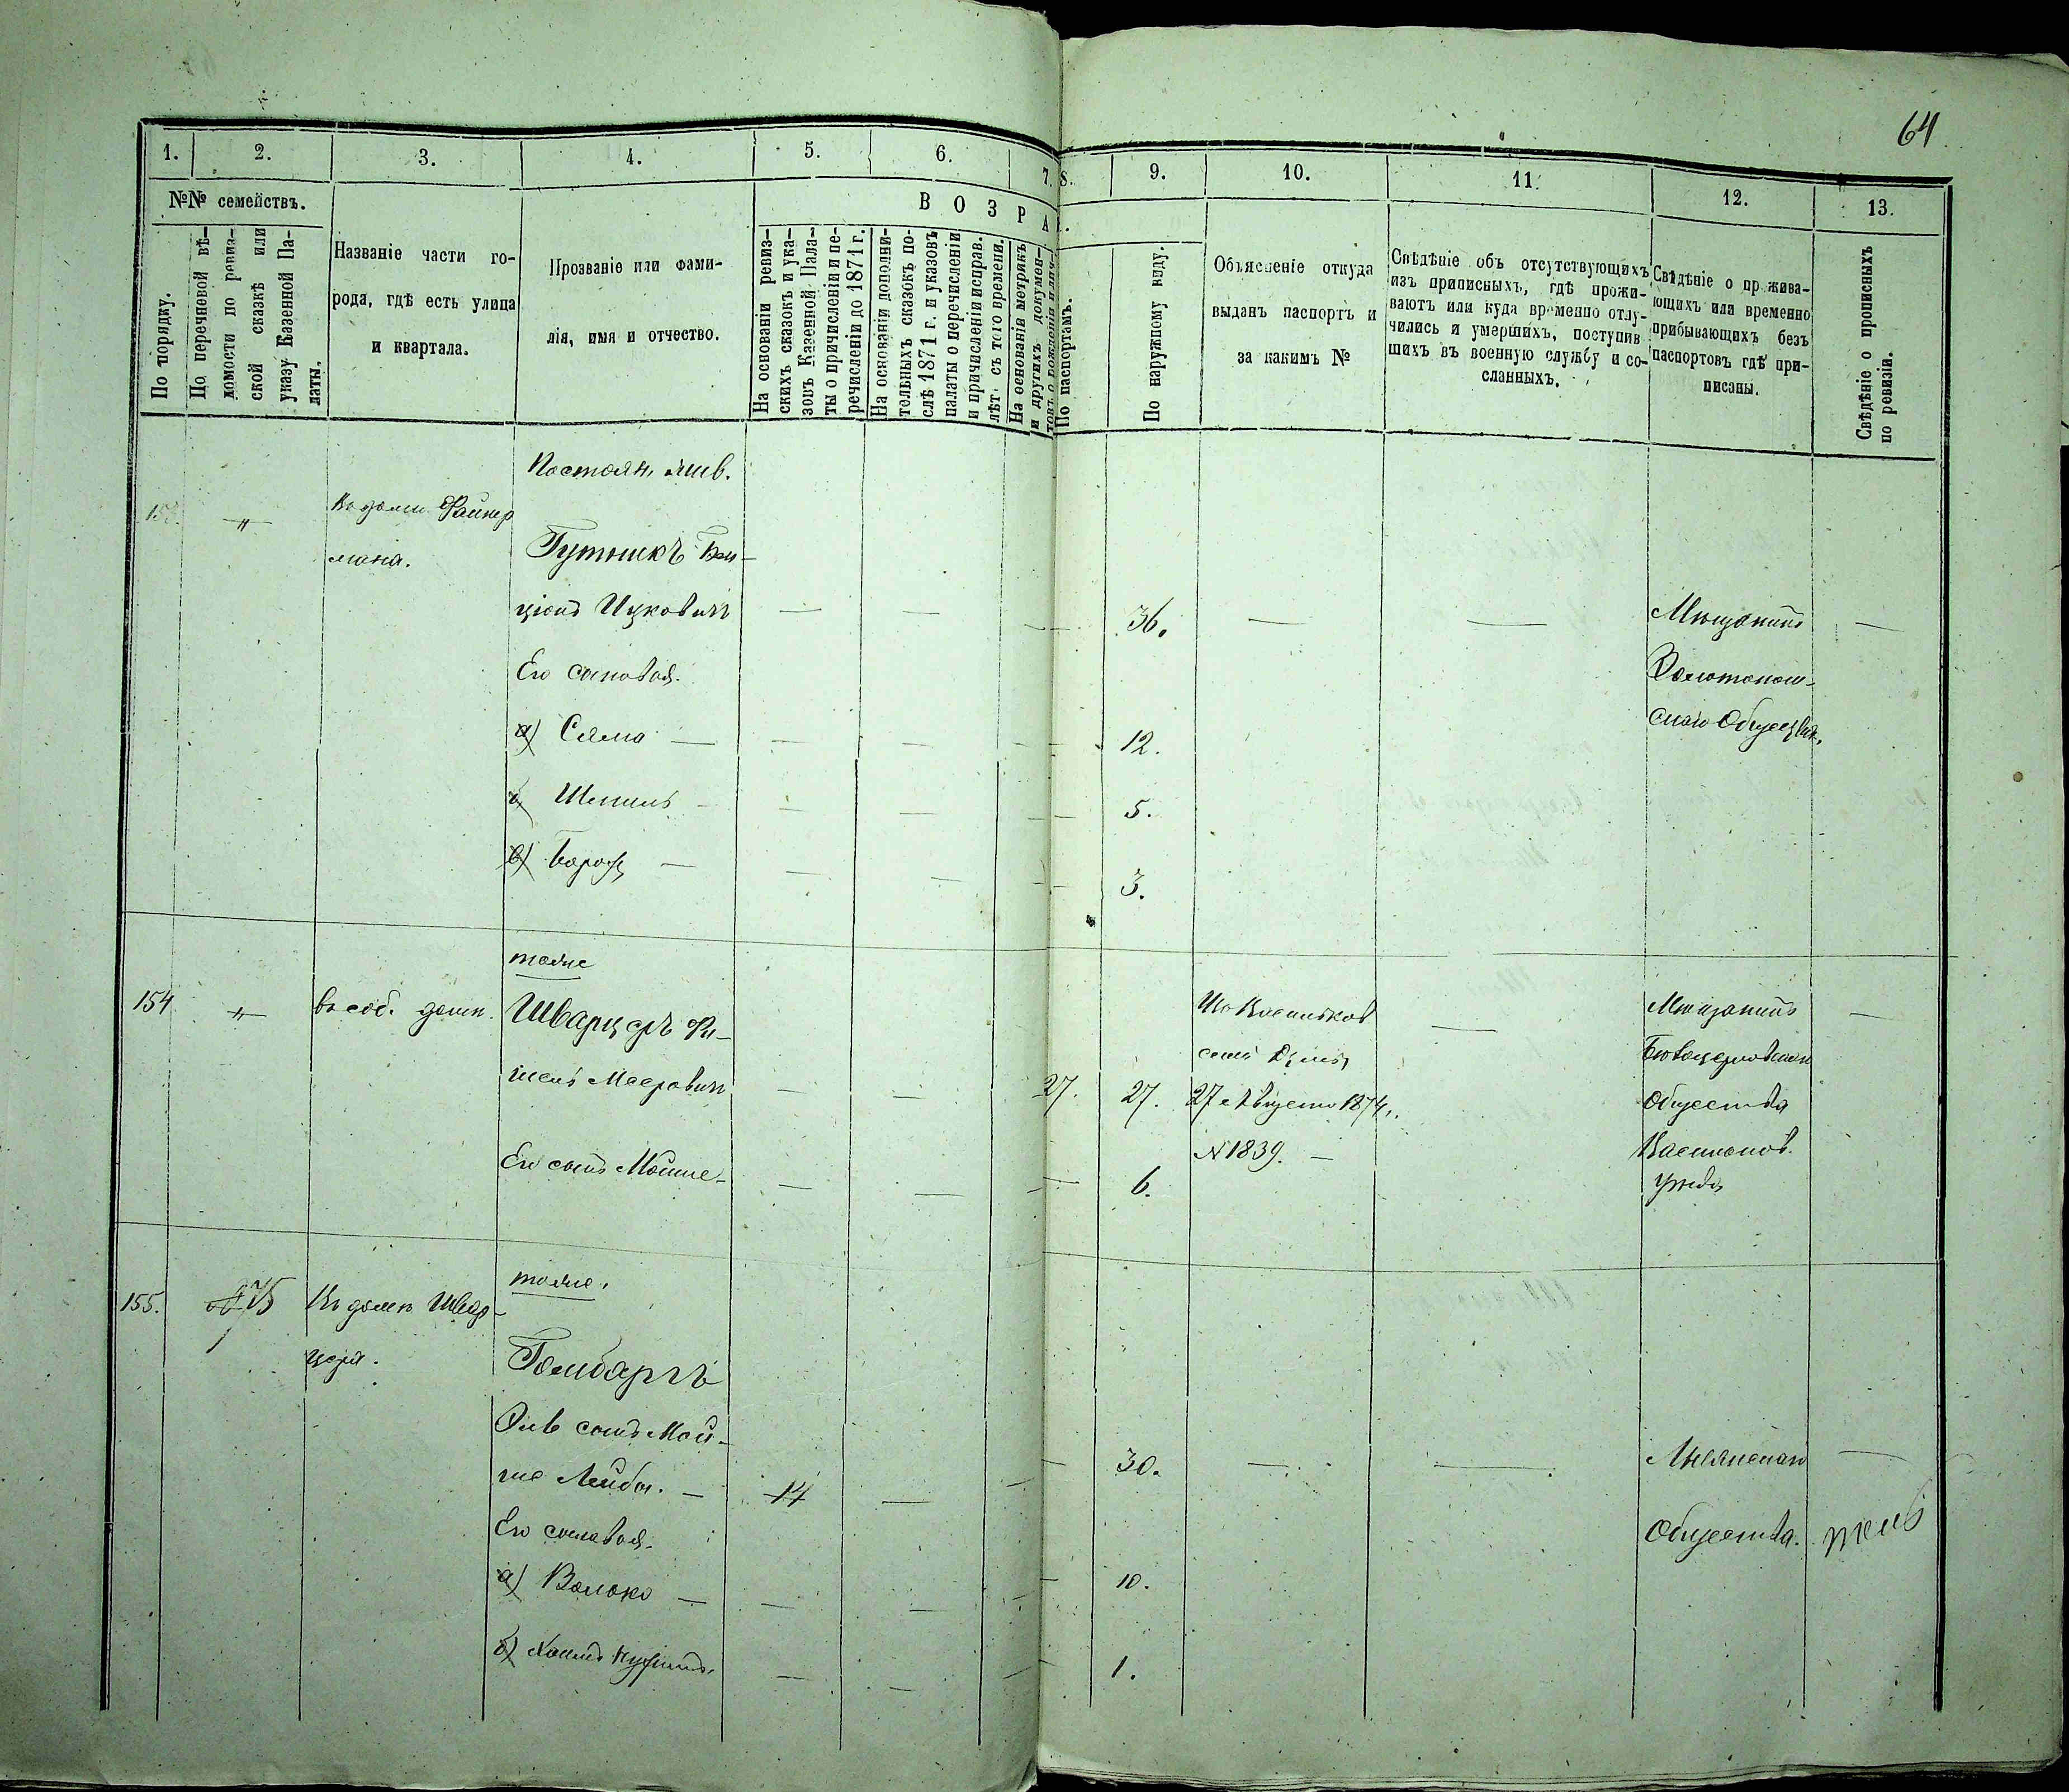 64
1.
2.
3.
4.
5.
6.
7.
8.
9.
10.
11.
12.
13.
№№ семействъ.
По порядку.
По перечневой вѣ-
домости по ревиз-
ской сказкѣ или
указу Казенной Па-
латы.
Названіе части го-
рода, гдѣ есть улица
и квартала.
Прозваніе или фами-
лія, имя и отчество.
В О З Р А
На основаніи ревиз-
скихъ сказокъ и ука-
зовъ Казенной Пала-
ты о причисленіи и пе-
речисленіи до 1871 г.
На основаніи дополни-
тельныхъ сказокъ по-
слѣ 1871 г. и указовъ
палаты о перечисленіи
и причисленіи исправ.
лѣт. съ того времени.
На основаніи метрикъ
и другихъ докумен-
товъ о рожденіи
По паспортамъ.
По наружному виду.
Объясненіе откуда
выданъ паспортъ и
за какимъ №
Свѣдѣніе объ отсутствующихъ
изъ приписныхъ, гдѣ прожи-
ваютъ или куда временно отлу-
чились и умершихъ, поступив
шихъ въ военную службу и со-
сланныхъ.
Свѣдѣніе о прожива-
ющихъ или временно
прибывающихъ безъ
паспортовъ гдѣ при-
писаны.
Свѣдѣніе о прописныхъ
по ревизіи.
Постоян. жив.
153.
Въ доми Файнер
мана.
Гутникъ Бен-
ціонъ Ицковичъ
36.
Мѣщанинъ
Его сыновья.
Золотонош-
а) Сёма
12.
скаго Общества.
б)
5.
в) Борох
3.
тоже
154
въ соб. доми.
Шварцеръ Фи-
шель Мееровичъ
27.
27.
Изъ Васильков
ской Думы
27 Августа 1874.
№ 1839.
Мѣщанинъ
Бѣлоцерковскаго
Общества
Васильков.
уѣзда
Его сынъ Мошне
6.
тоже.
155.
Въ доми Швар-
цера.
Гольбергъ
сынъ Мой-
ше Лейба.
14
30.
Общества.
Его сыновья.
а) Волько
10.
б) Хаимъ
1.